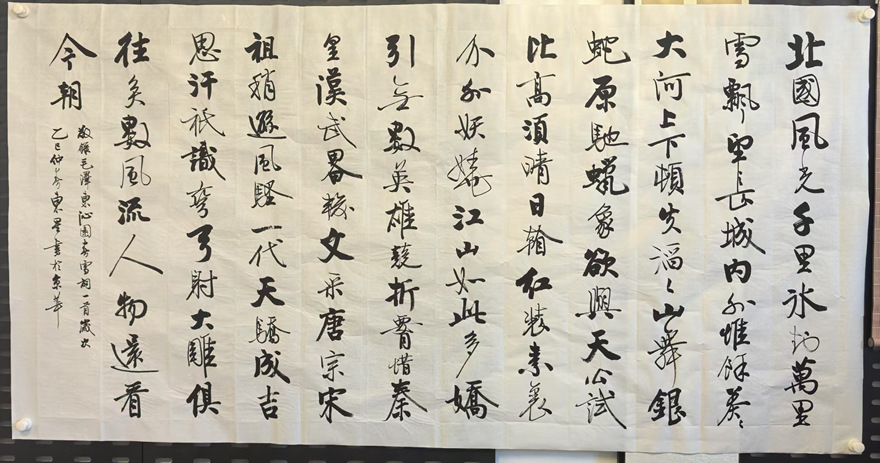 北國風光千里冰封萬里
雪飄望長城內外惟餘莽〻
大河上下頓失滔〻山舞銀
蛇原馳蠟象欲與天公試
比高須晴日看紅裝素裹
分外妖嬈江山如此多嬌
引無數英雄競折腰惜秦
皇漢武畧輸文采唐宗宋
祖稍遜風騷一代天驕成吉
思汗祇識彎弓射大雕俱
往矣數風流人物還看
今朝
敬錄毛澤東沁園春雪詞一首歲次
乙巳仲春東星書於京華